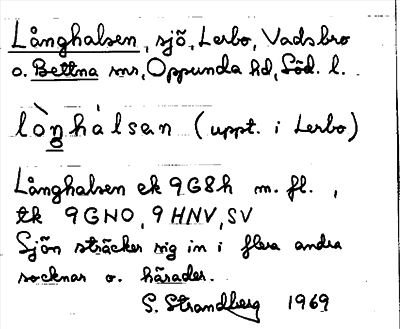 Långhalsen, sjö, Lerbo, Vadsbro
o. Bettna snr, Oppunda hd, Söd. l.
lòn̥hàlsan (uppt. i Lerbo)
Långhalsen ek 9G8h m. fl. ,
tk 9GNO, 9HNV, SV
Sjön sträcker sig in i flera andra
socknar o. härader.
S. Strandberg 1969